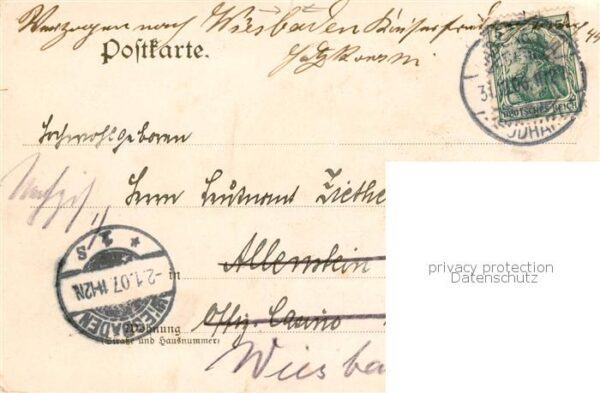 Verzogen nach Wiesbaden
Postkarte.
DEUTSCHES REICH
Hochwohlgeboren
Herrn Leutnant Ziethe
in Allenstein
Offiz. Casino
Wohnung
(Straße und Hausnummer)
Wiesba
WIESBADEN
-2.1.07. 11-12N.
privacy protection
Datenschutz